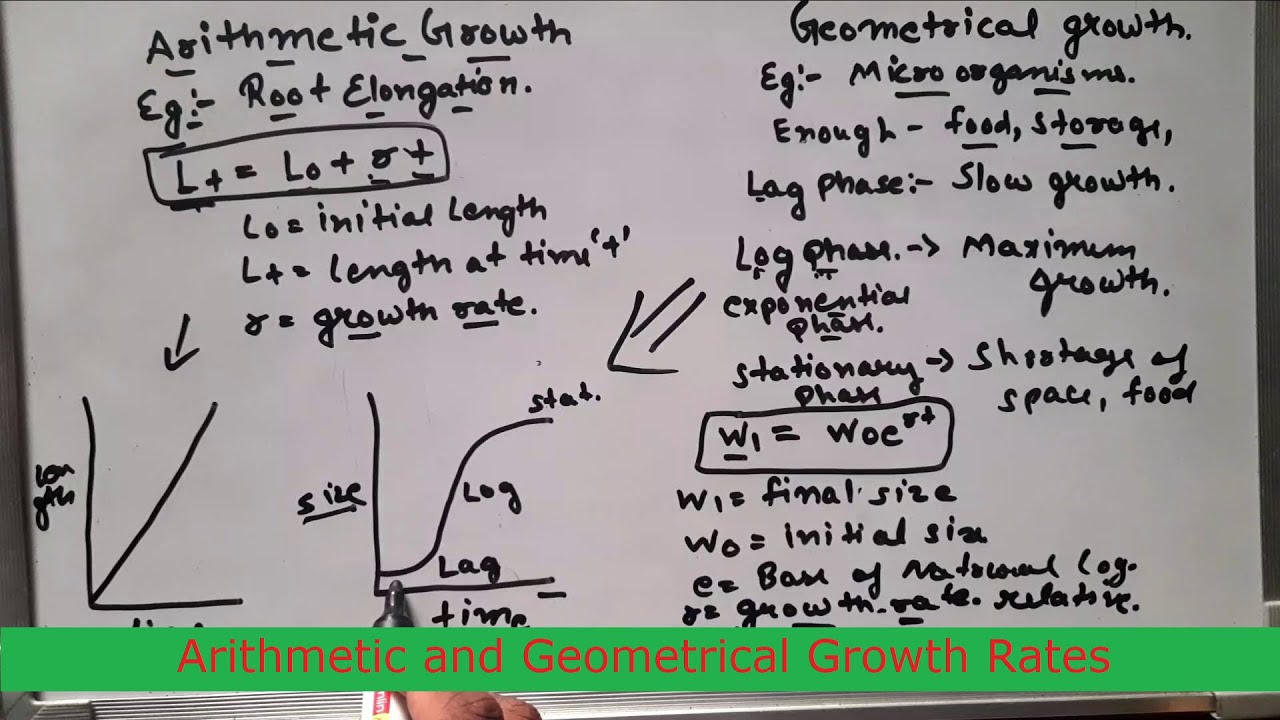 Arithmetic Growth
Eg:- Root Elongation.
Lt = Lo + rt
Lo = initial Length
Lt = length at time 't'
r = growth rate.
Length
Geometrical growth.
Eg:- Microorganisms.
Enough - food, storage,
Lag phase:- Slow growth.
Log phase. -> Maximum
growth.
exponential
phase.
stationary -> Shortage of
phase space, food
W1 = Woe^rt
W1 = final size
Wo = initial size
e = Base of Natural log.
r = growth rate. relative.
stat.
size
Log
Lag
time
Arithmetic and Geometrical Growth Rates